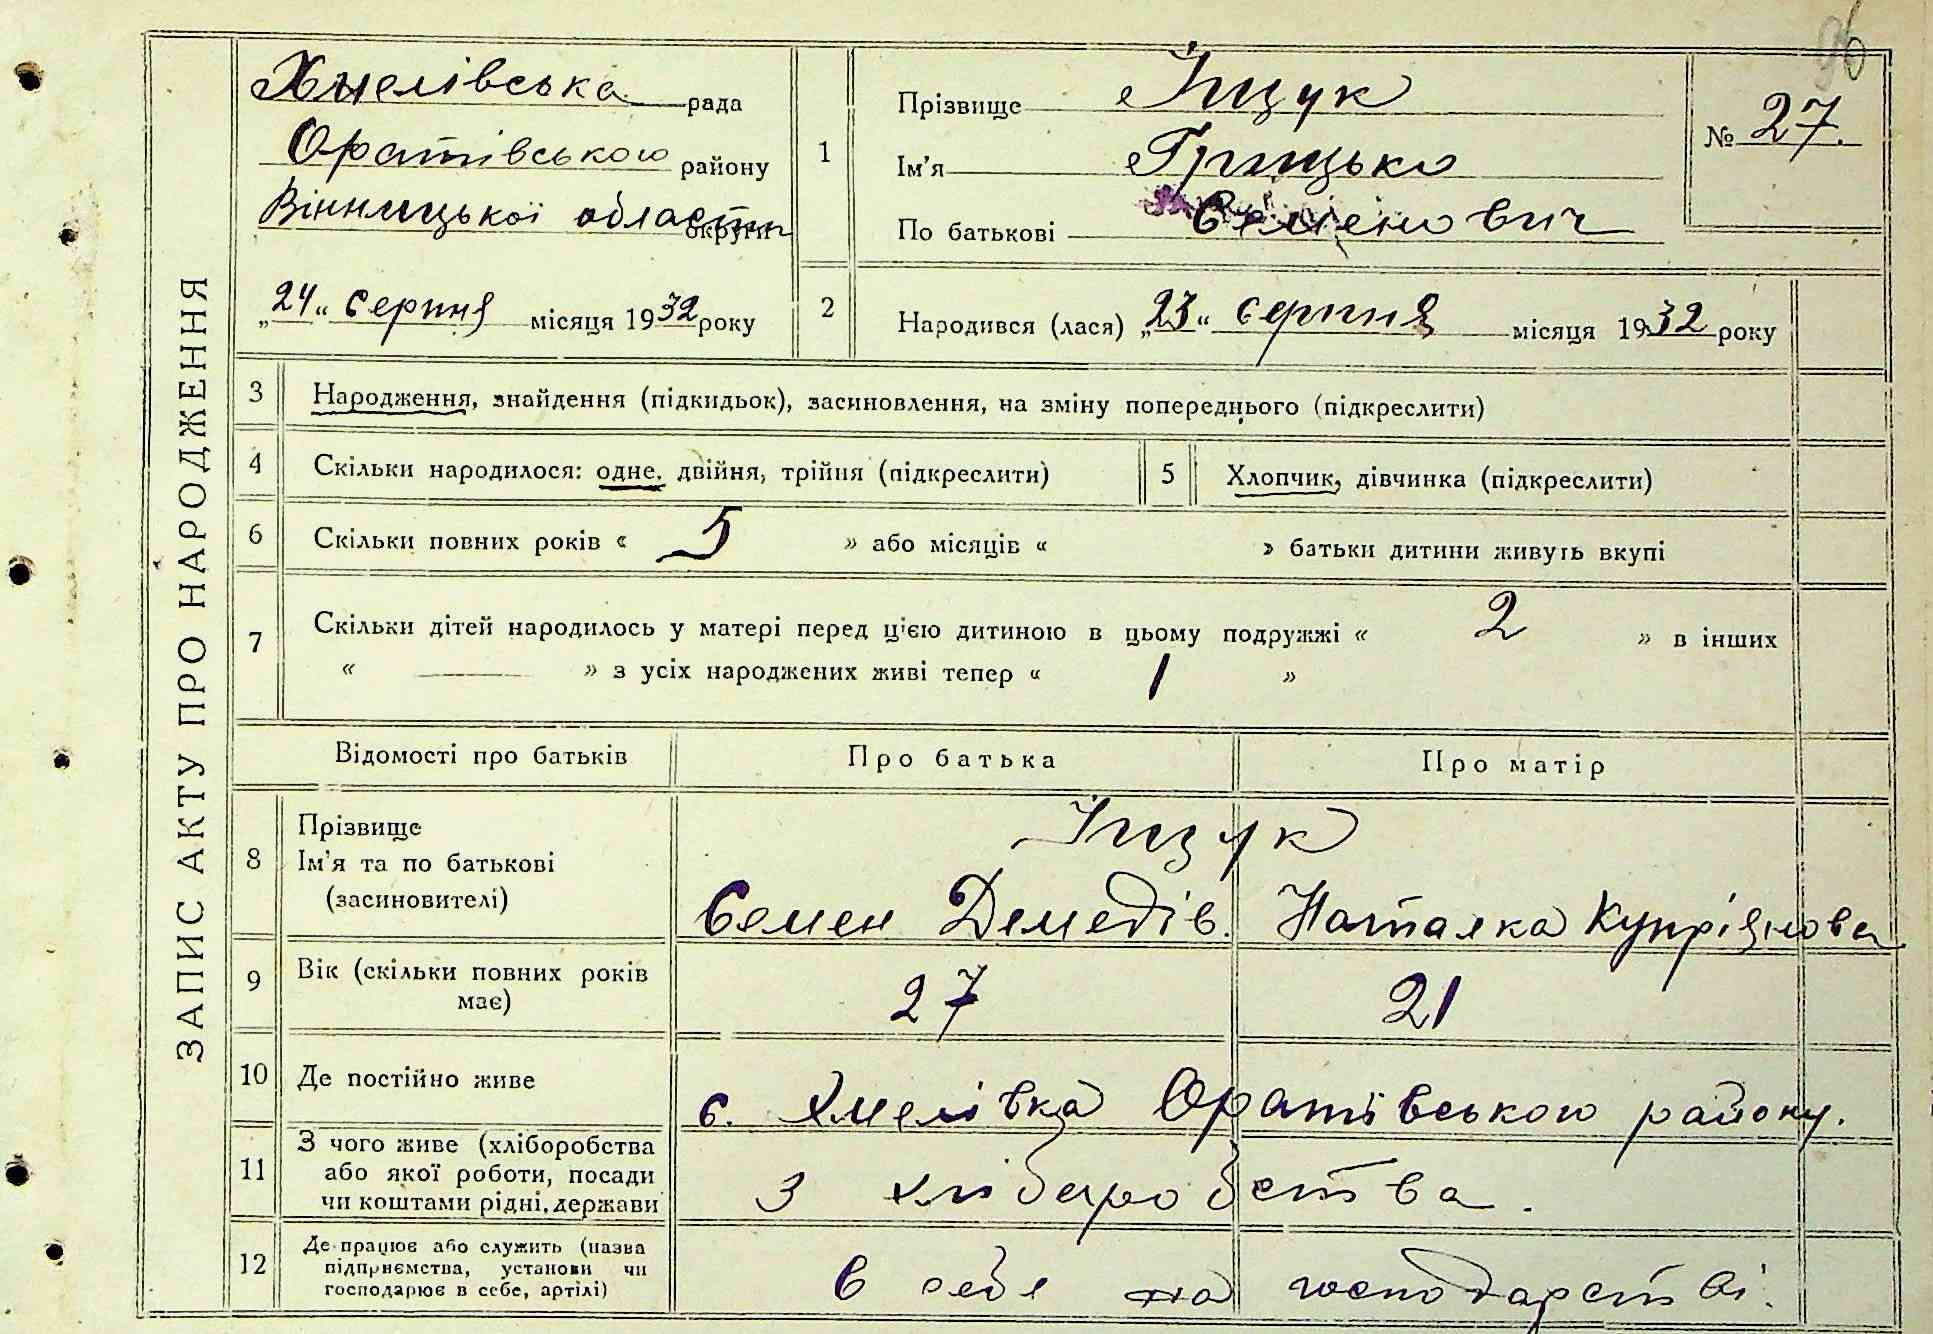 96
Хмелівська рада
Оратівського району
Вінницької области округи
„24“ серпня місяця 1932 року
1
Прізвище Іщук
Ім’я Грицько
По батькові Семенович
№ 27.
2
Народився (лася) „23“ серпня місяця 1932 року
ЗАПИС АКТУ ПРО НАРОДЖЕННЯ
3 Народження, знайдення (підкидьок), засиновлення, на зміну попереднього (підкреслити)
4 Скільки народилося: одне, двійня, трійня (підкреслити)
5 Хлопчик, дівчинка (підкреслити)
6 Скільки повних років « 5 » або місяців « » батьки дитини живуть вкупі
7 Скільки дітей народилось у матері перед цією дитиною в цьому подружжі « 2 » в інших
« — » з усіх народжених живі тепер « 1 »
Відомості про батьків Про батька Про матір
8
Прізвище
Ім’я та по батькові
(засиновителі)
Іщук
Семен Демедів. Наталка Купріянова
9
Вік (скільки повних років
має)
27 21
10 Де постійно живе
с. Хмелівка Оратівського району.
11
З чого живе (хліборобства
або якої роботи, посади
чи коштами рідні, держави
З хліборобства.
12
Де працює або служить (назва
підприємства, установи чи
господарює в себе, артілі)
в себе на господарстві.